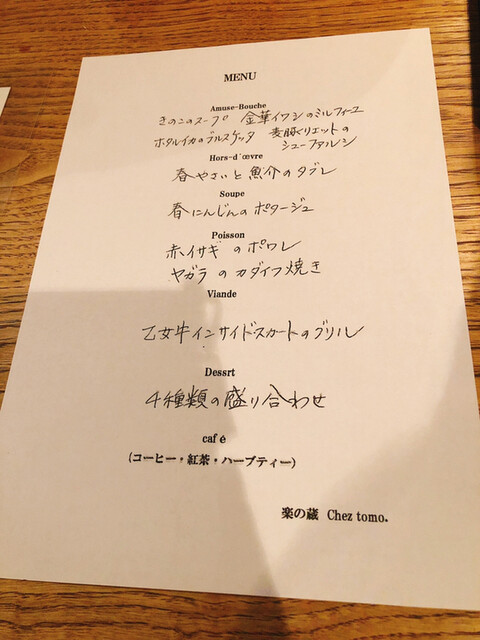 MENU
Amuse-Bouche
きのこのスープ 金華イワシのミルフィーユ
ホタルイカのブルスケッタ 麦豚リエットの
シューファルシ
Hors-d'œvre
春やさいと魚介のタブレ
Soupe
春にんじんのポタージュ
Poisson
赤イサギのポワレ
ヤガラのカダイフ焼き
Viande
乙女牛インサイドスカートのグリル
Dessrt
4種類の盛り合わせ
café
(コーヒー・紅茶・ハーブティー)
楽の蔵 Chez tomo.